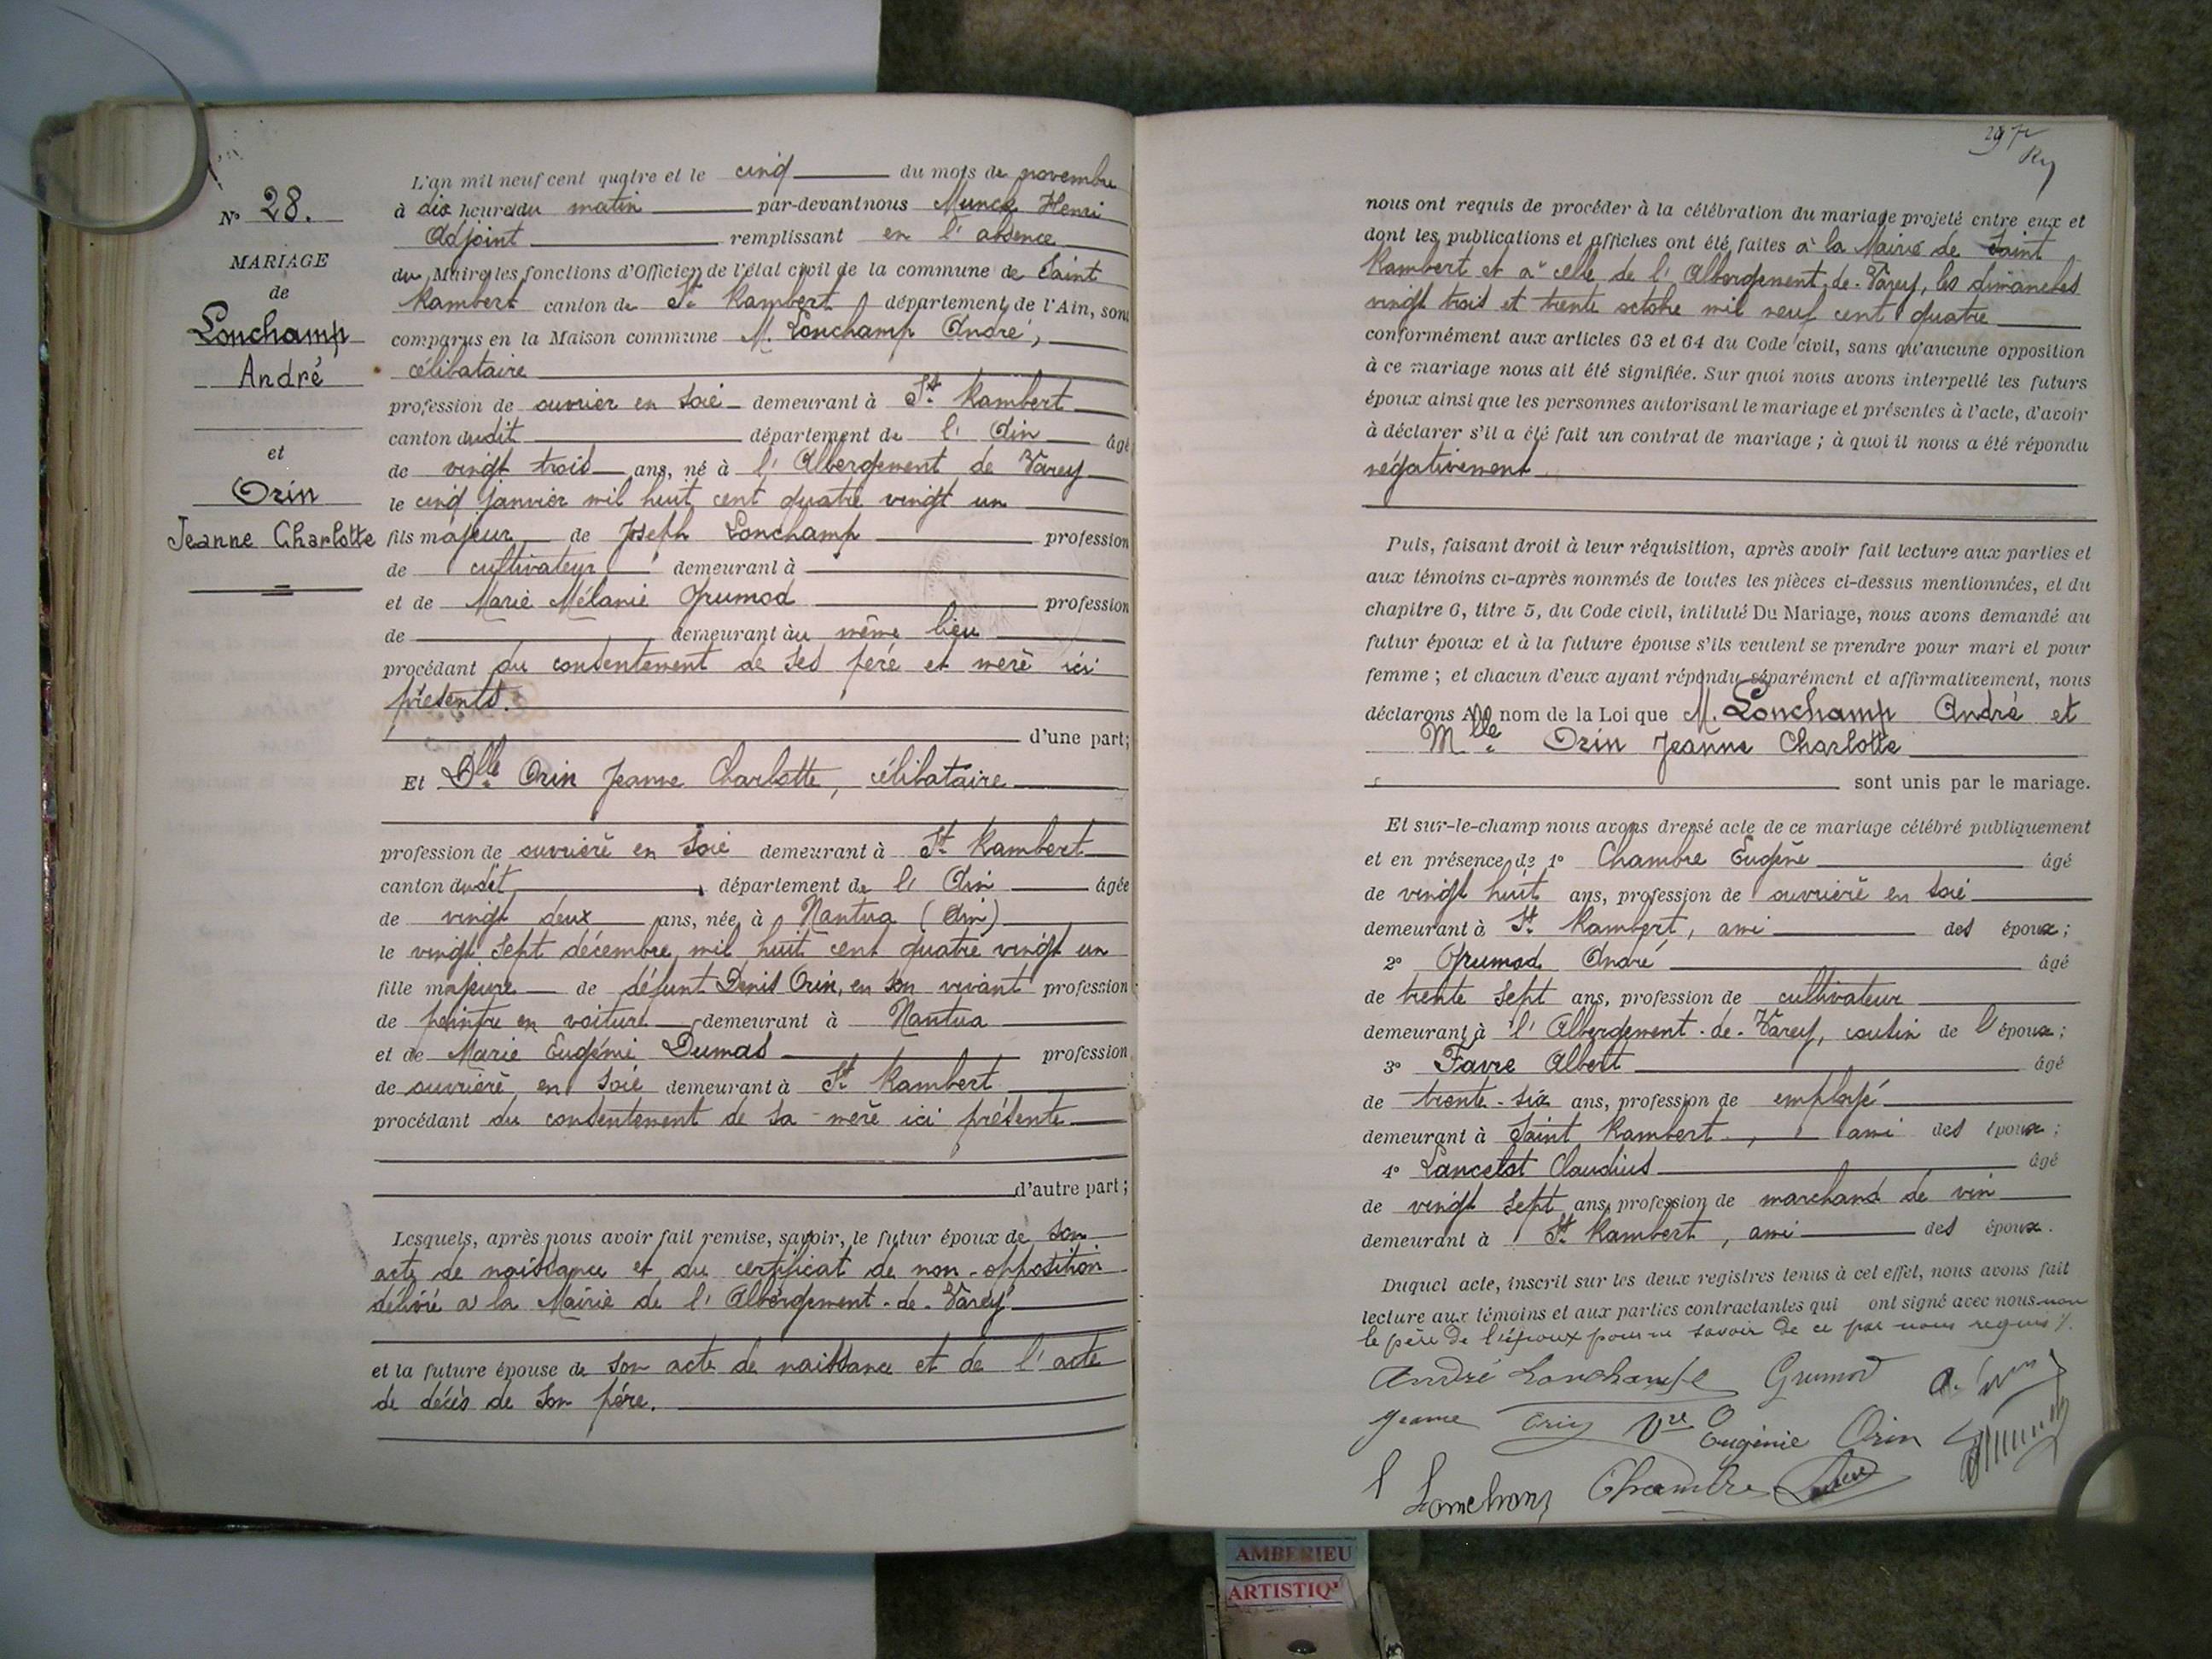 N° 28.
MARIAGE
de
Lonchamp
André
et
Orin
Jeanne Charlotte
L'an mil neuf cent quatre et le cinq du mois de novembre
à dix heures du matin par-devant nous Munck Henri
Adjoint remplissant en l'absence
du Maire les fonctions d'Officier de l'état civil de la commune de Saint
Rambert canton de St Rambert département de l'Ain, sont
comparus en la Maison commune M. Lonchamp André,
célibataire
profession de ouvrier en soie demeurant à St Rambert
canton dudit département de l'Ain âgé
de vingt trois ans, né à l'Albergement de Varey
le cinq janvier mil huit cent quatre vingt un
fils majeur de Joseph Lonchamp profession
de cultivateur demeurant à
et de Marie Mélanie Grumod profession
de demeurant au même lieu
procédant du consentement de ses père et mère ici
présents.
d'une part;
Et Dlle Orin Jeanne Charlotte, célibataire
profession de ouvrière en soie demeurant à St Rambert
canton dudit département de l'Ain âgée
de vingt deux ans, née à Nantua (Ain)
le vingt sept décembre mil huit cent quatre vingt un
fille majeure de défunt Denis Orin, en son vivant profession
de peintre en voiture demeurant à Nantua
et de Marie Eugénie Dumas profession
de ouvrière en soie demeurant à St Rambert
procédant du consentement de sa mère ici présente
d'autre part;
Lesquels, après nous avoir fait remise, savoir, le futur époux de son
acte de naissance et du certificat de non-opposition
délivré à la Mairie de l'Albergement-de-Varey
et la future épouse de son acte de naissance et de l'acte
de décès de son père.
297
nous ont requis de procéder à la célébration du mariage projeté entre eux et
dont les publications et affiches ont été faites à la Mairie de Saint
Rambert et à celle de l'Albergement-de-Varey, les dimanches
vingt trois et trente octobre mil neuf cent quatre
conformément aux articles 63 et 64 du Code civil, sans qu'aucune opposition
à ce mariage nous ait été signifiée. Sur quoi nous avons interpellé les futurs
époux ainsi que les personnes autorisant le mariage et présentes à l'acte, d'avoir
à déclarer s'il a été fait un contrat de mariage; à quoi il nous a été répondu
négativement
Puis, faisant droit à leur réquisition, après avoir fait lecture aux parties et
aux témoins ci-après nommés de toutes les pièces ci-dessus mentionnées, et du
chapitre 6, titre 5, du Code civil, intitulé Du Mariage, nous avons demandé au
futur époux et à la future épouse s'ils veulent se prendre pour mari et pour
femme; et chacun d'eux ayant répondu séparément et affirmativement, nous
déclarons Au nom de la Loi que M. Lonchamp André et
Mlle Orin Jeanne Charlotte
sont unis par le mariage.
Et sur-le-champ nous avons dressé acte de ce mariage célébré publiquement
et en présence de 1° Chambre Eugène âgé
de vingt huit ans, profession de ouvrière en soie
demeurant à St Rambert, ami des époux;
2° Grumod André âgé
de trente sept ans, profession de cultivateur
demeurant à l'Albergement-de-Varey, cousin de l'époux;
3° Favre Albert âgé
de trente-six ans, profession de employé
demeurant à Saint Rambert, ami des époux;
4° Lancelot Claudius âgé
de vingt sept ans, profession de marchand de vin
demeurant à St Rambert, ami des époux.
Duquel acte, inscrit sur les deux registres tenus à cet effet, nous avons fait
lecture aux témoins et aux parties contractantes qui ont signé avec nous non
le père de l'époux pour ne savoir de ce par nous requis
André Lonchamp Grumod
Jeanne Orin Vve Eugénie Orin
Lonchamp Chambre
AMBERIEU
ARTISTIQ